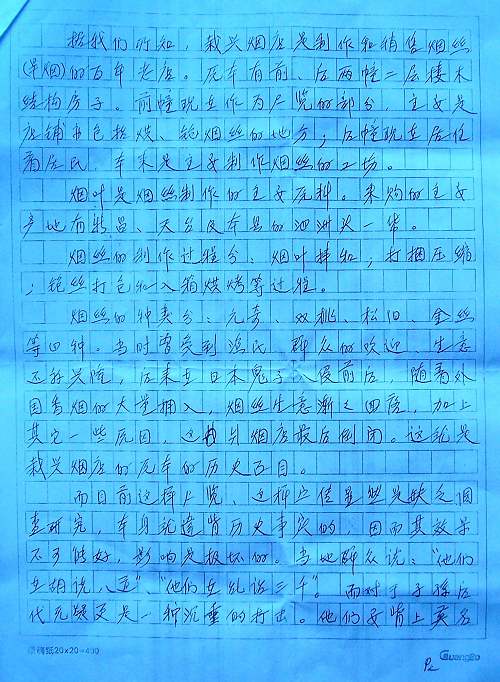 据我们所知，裁兴烟店是制作和销售烟丝
(旱烟)的百年老店。原本有前、后两幢二层楼木
结构房子。前幢现在作为展览的部分，主要是
店铺也包括烘、铇烟丝的地方；后幢现在居住
着居民，本来是主要制作烟丝的工场。
烟叶是烟丝制作的主要原料。采购的主要
产地有新昌、天台及本县的泗洲头一带。
烟丝的制作过程分、烟叶拌和；打捆压缩
；铇丝打包和入箱烘烤等过程。
烟丝的种类分：元奇、双桃、松旧、金丝
等四种。当时曾受到渔民、群众的欢迎、生意
还好兴隆，后来在日本鬼子入侵前后，随着外
国香烟的大量拥入，烟丝生意渐之四落，加上
其它一些原因，这片烟店最后倒闭。这就是
裁兴烟店的原本的历史面目。
而目前这样展览、这种宣传显然是缺乏调
查研究，本身就违背历史事实的，因而其效果
不可能好，影响是极坏的。当地群众说：“他们
在胡说八道”、“他们在乱话三千”。而对于子孙后
代无疑更是一种沉重的打击。他们要背上莫名
原稿纸20×20=400
GuangBo
P2